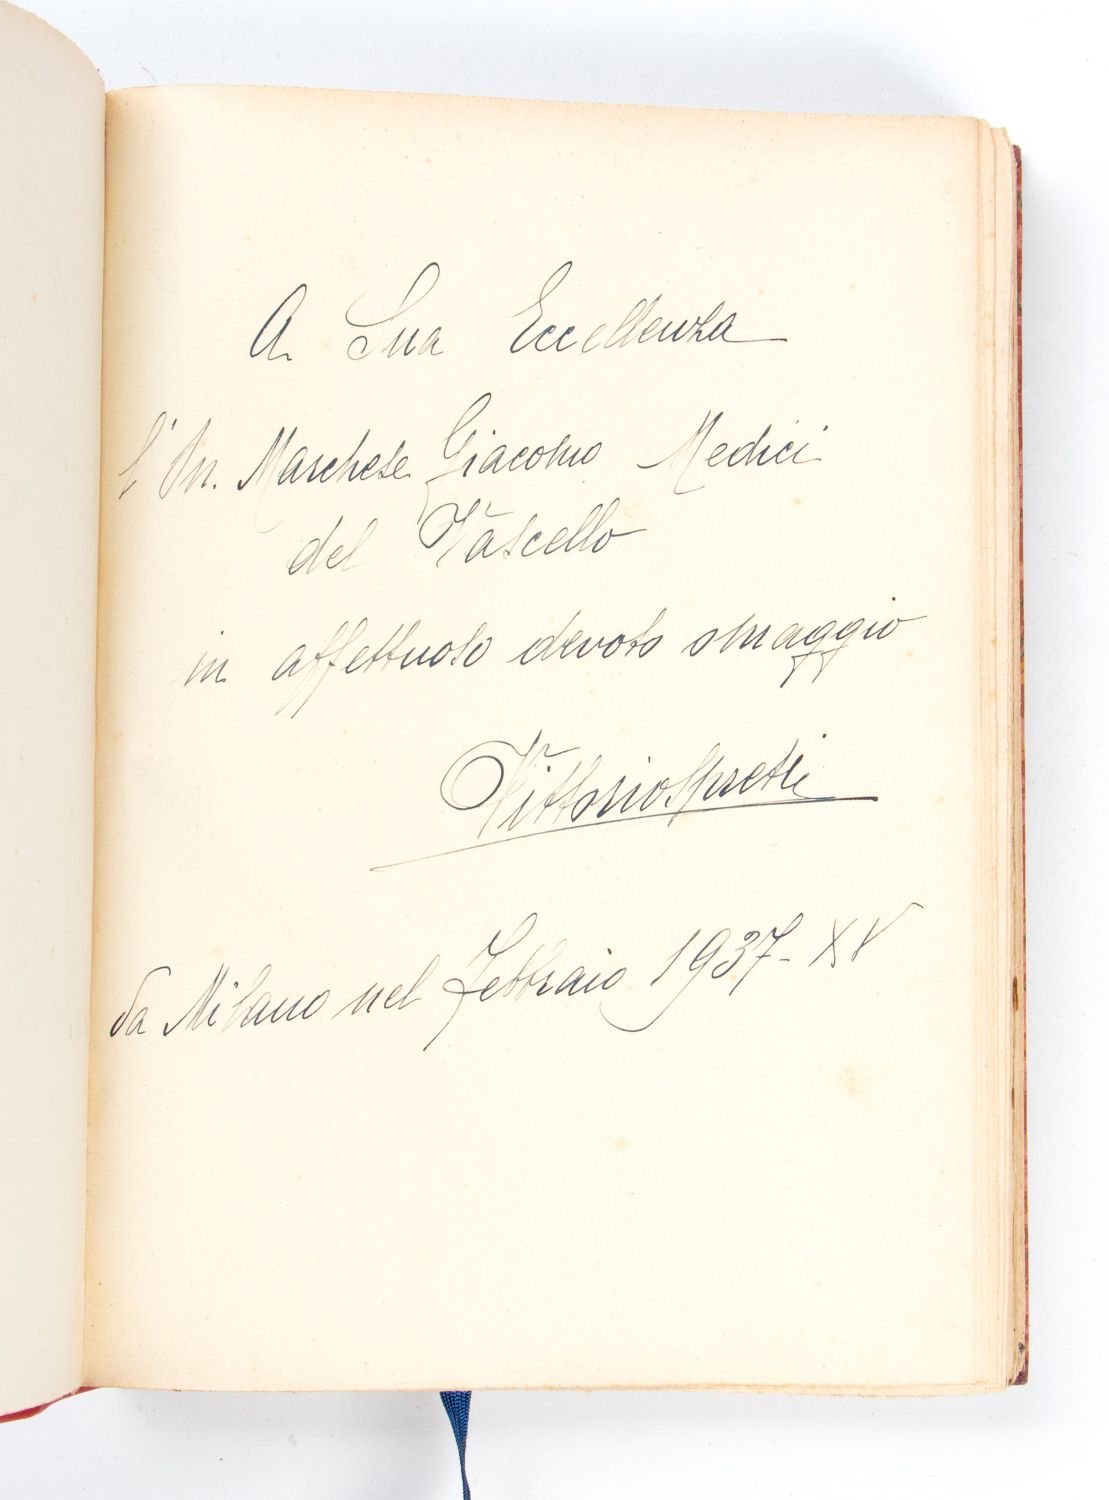 A Sua Eccellenza
l'On. Marchese Giacomo Medici
del Vascello
in affettuoso devoto omaggio
Vittorio Spreti
da Milano nel Febbraio 1937-XV